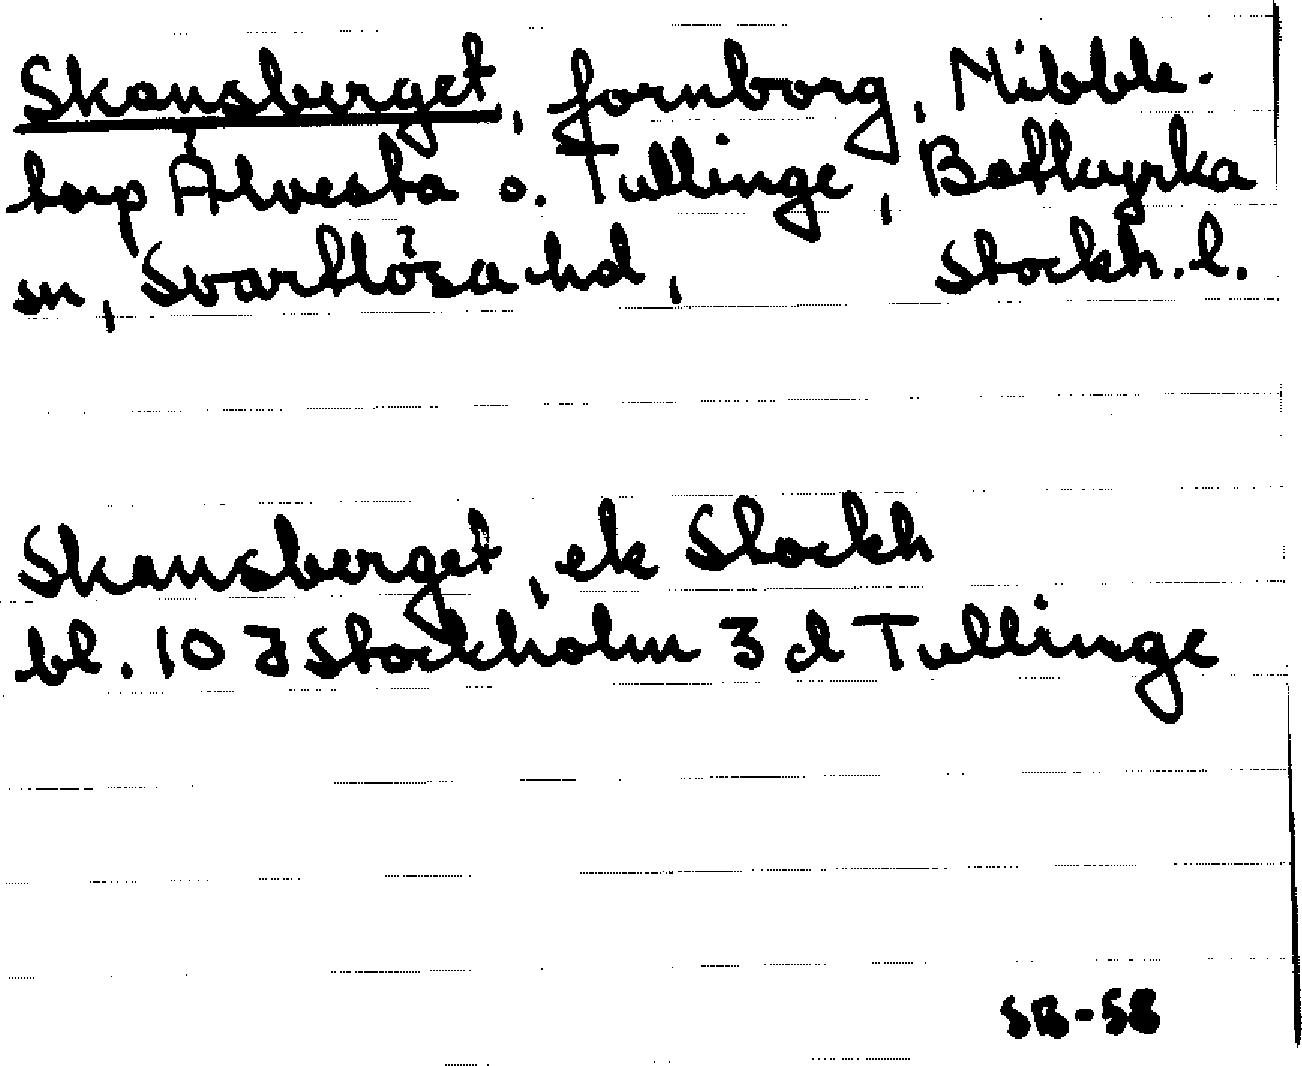 Skansberget, fornborg, Nibble-
torp Älvesta o. Tullinge, Botkyrka
sn, Svartlösa hd, Stockh. l.
Skansberget, ek Stockh
bl. 10 J Stockholm 3 d Tullinge
SB-58